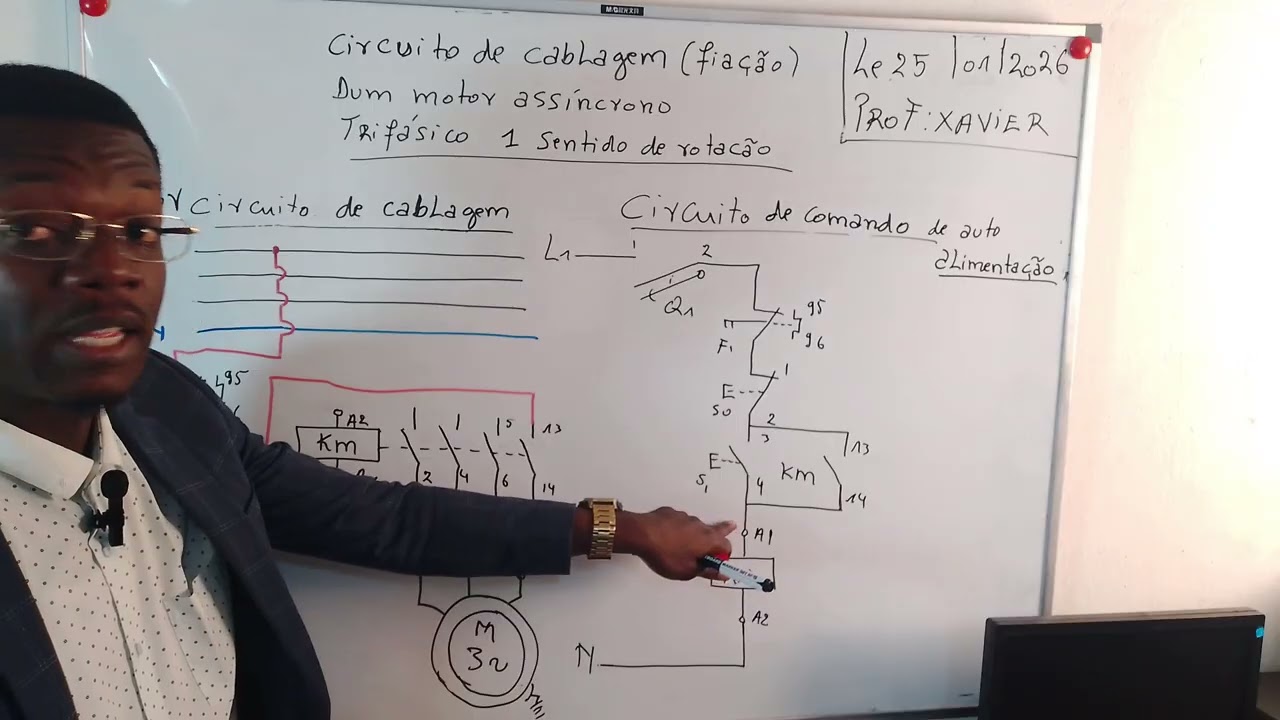 Circuito de cablagem (fiação)
Dum motor assíncrono
Trifásico 1 Sentido de rotação
Le 25/01/2026
PROF: XAVIER
Circuito de cablagem
Circuito de comando de auto
alimentação
L1 1 2
0
Q1
95
96
F1
1
S0
2
3
13
KM
S1
4
14
A1
A2
N
95
A2
KM
5
13
2 4 6 14
M
3~